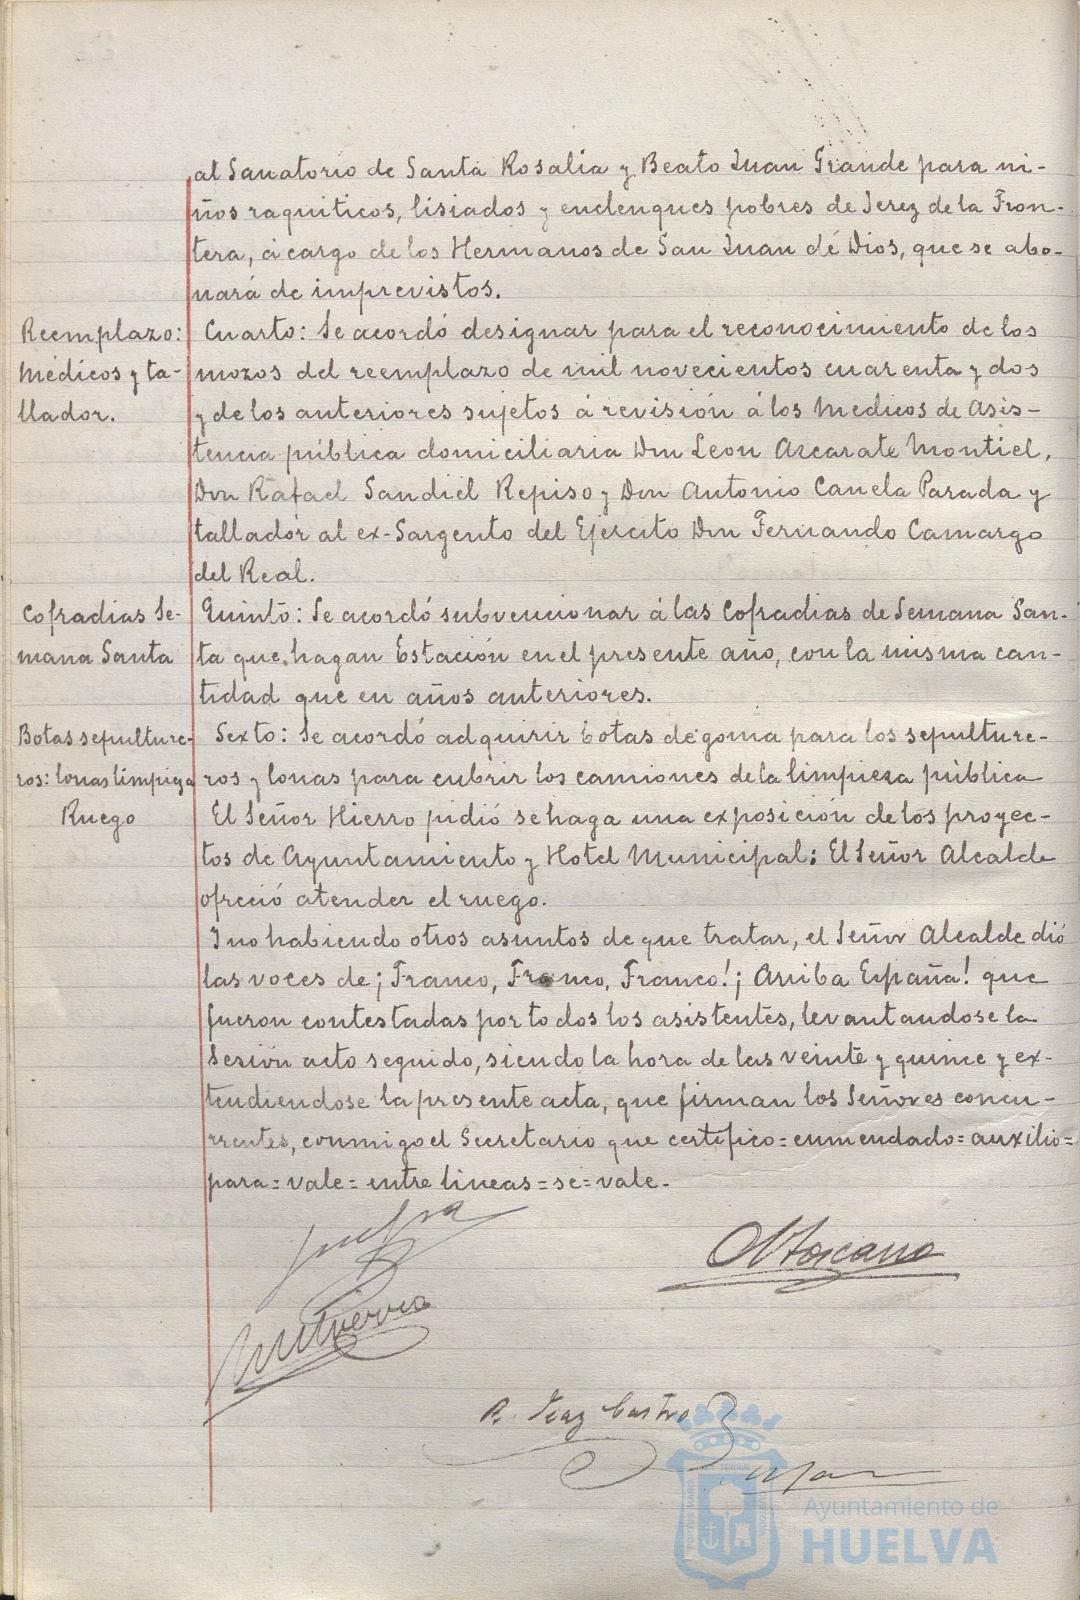 al Sanatorio de Santa Rosalia y Beato Juan Grande para ni-
ños raquiticos, lisiados y enclenques pobres de Jerez de la Fron-
tera, á cargo de los Hermanos de San Juan dé Dios, que se abo-
nará de imprevistos.
Reemplazo:
Médicos y ta-
llador.
Cuarto: Se acordó designar para el reconocimiento de los
mozos del reemplazo de mil novecientos cuarenta y dos
y de los anteriores sujetos á revisión á los Medicos de Asis-
tencia pública domiciliaria Don Leon Azcarate Montiel,
Don Rafael Sandiel Repiso y Don Antonio Canela Parada y
tallador al ex-Sargento del Ejercito Don Fernando Camargo
del Real.
Cofradias Se-
mana Santa
Quinto: Se acordó subvencionar á las Cofradias de Semana San-
ta que hagan Estación en el presente año, con la misma can-
tidad que en años anteriores.
Botas sepulture-
ros: lonas limpieza
Ruego
Sexto: Se acordó adquirir botas de goma para los sepulture-
ros y lonas para cubrir los camiones de la limpieza pública
El Señor Hierro pidió se haga una exposición de los proyec-
tos de Ayuntamiento y Hotel Municipal: El Señor Alcalde
ofreció atender el ruego.
Y no habiendo otros asuntos de que tratar, el Señor Alcalde dió
las voces de ¡Franco, Franco, Franco! ¡Arriba España! que
fueron contestadas por todos los asistentes, levantandose la
Sesión acto seguido, siendo la hora de las veinte y quince y ex-
tendiendose la presente acta, que firman los Señores concu-
rrentes, conmigo el Secretario que certifico = enmendado = auxilio =
para = vale = entre lineas = se = vale.
Toscano
R. Diaz Castro
Ayuntamiento de
HUELVA